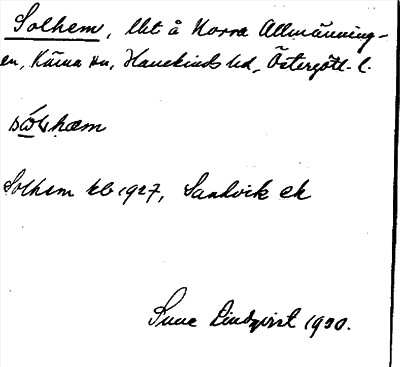 Solhem, lht å Norra Allmänning-
en, Kärna sn, Hanekinds hd, Östergötl. l.
sólhæm
Solhem kb 1927, Sandvik ek
Sune Lindqvist 1930.